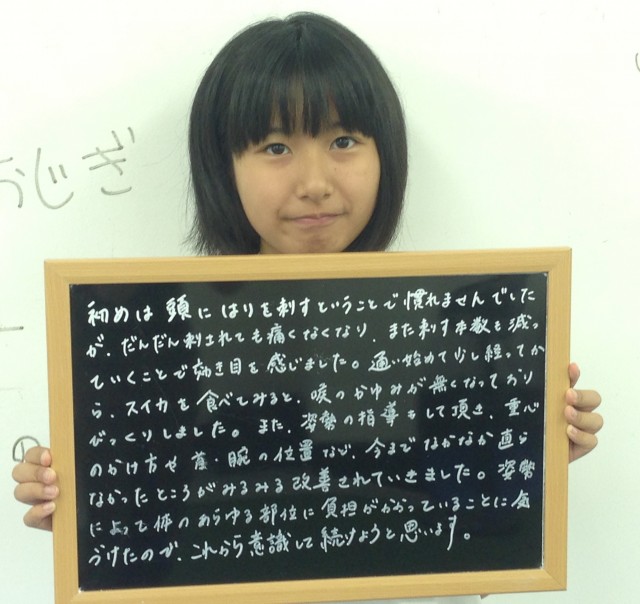 おじぎ
初めは頭にはりを刺すということで慣れませんでした
が、だんだん刺されても痛くなくなり、また刺す本数も減っ
ていくことで効き目を感じました。通い始めて少し経ってか
ら、スイカを食べてみると、喉のかゆみが無くなっており
びっくりしました。また、姿勢の指導をして頂き、重心
のかけ方や首・腕の位置など、今までなかなか直ら
なかったところがみるみる改善されていきました。姿勢
によって体のあらゆる部位に負担がかかっていることに気
づけたので、これから意識して続けようと思います。